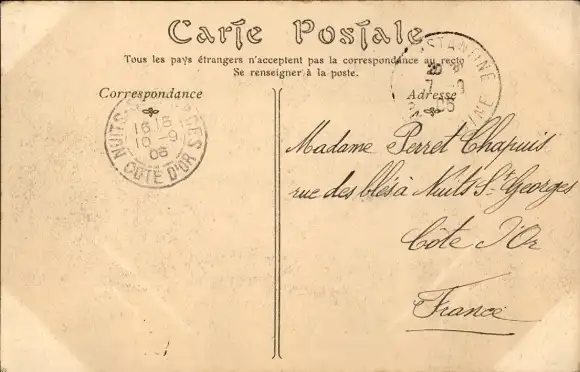 Carte Postale
Tous les pays étrangers n'acceptent pas la correspondance au recto
Se renseigner à la poste.
Correspondance
Adresse
NUITS-S
GES
16 15
10 - 9
06
COTE D'OR
STANTINE
20
7 - 8
06
Madame Perret Chapuis
rue des blés à Nuits St Georges
Côte d'Or
France